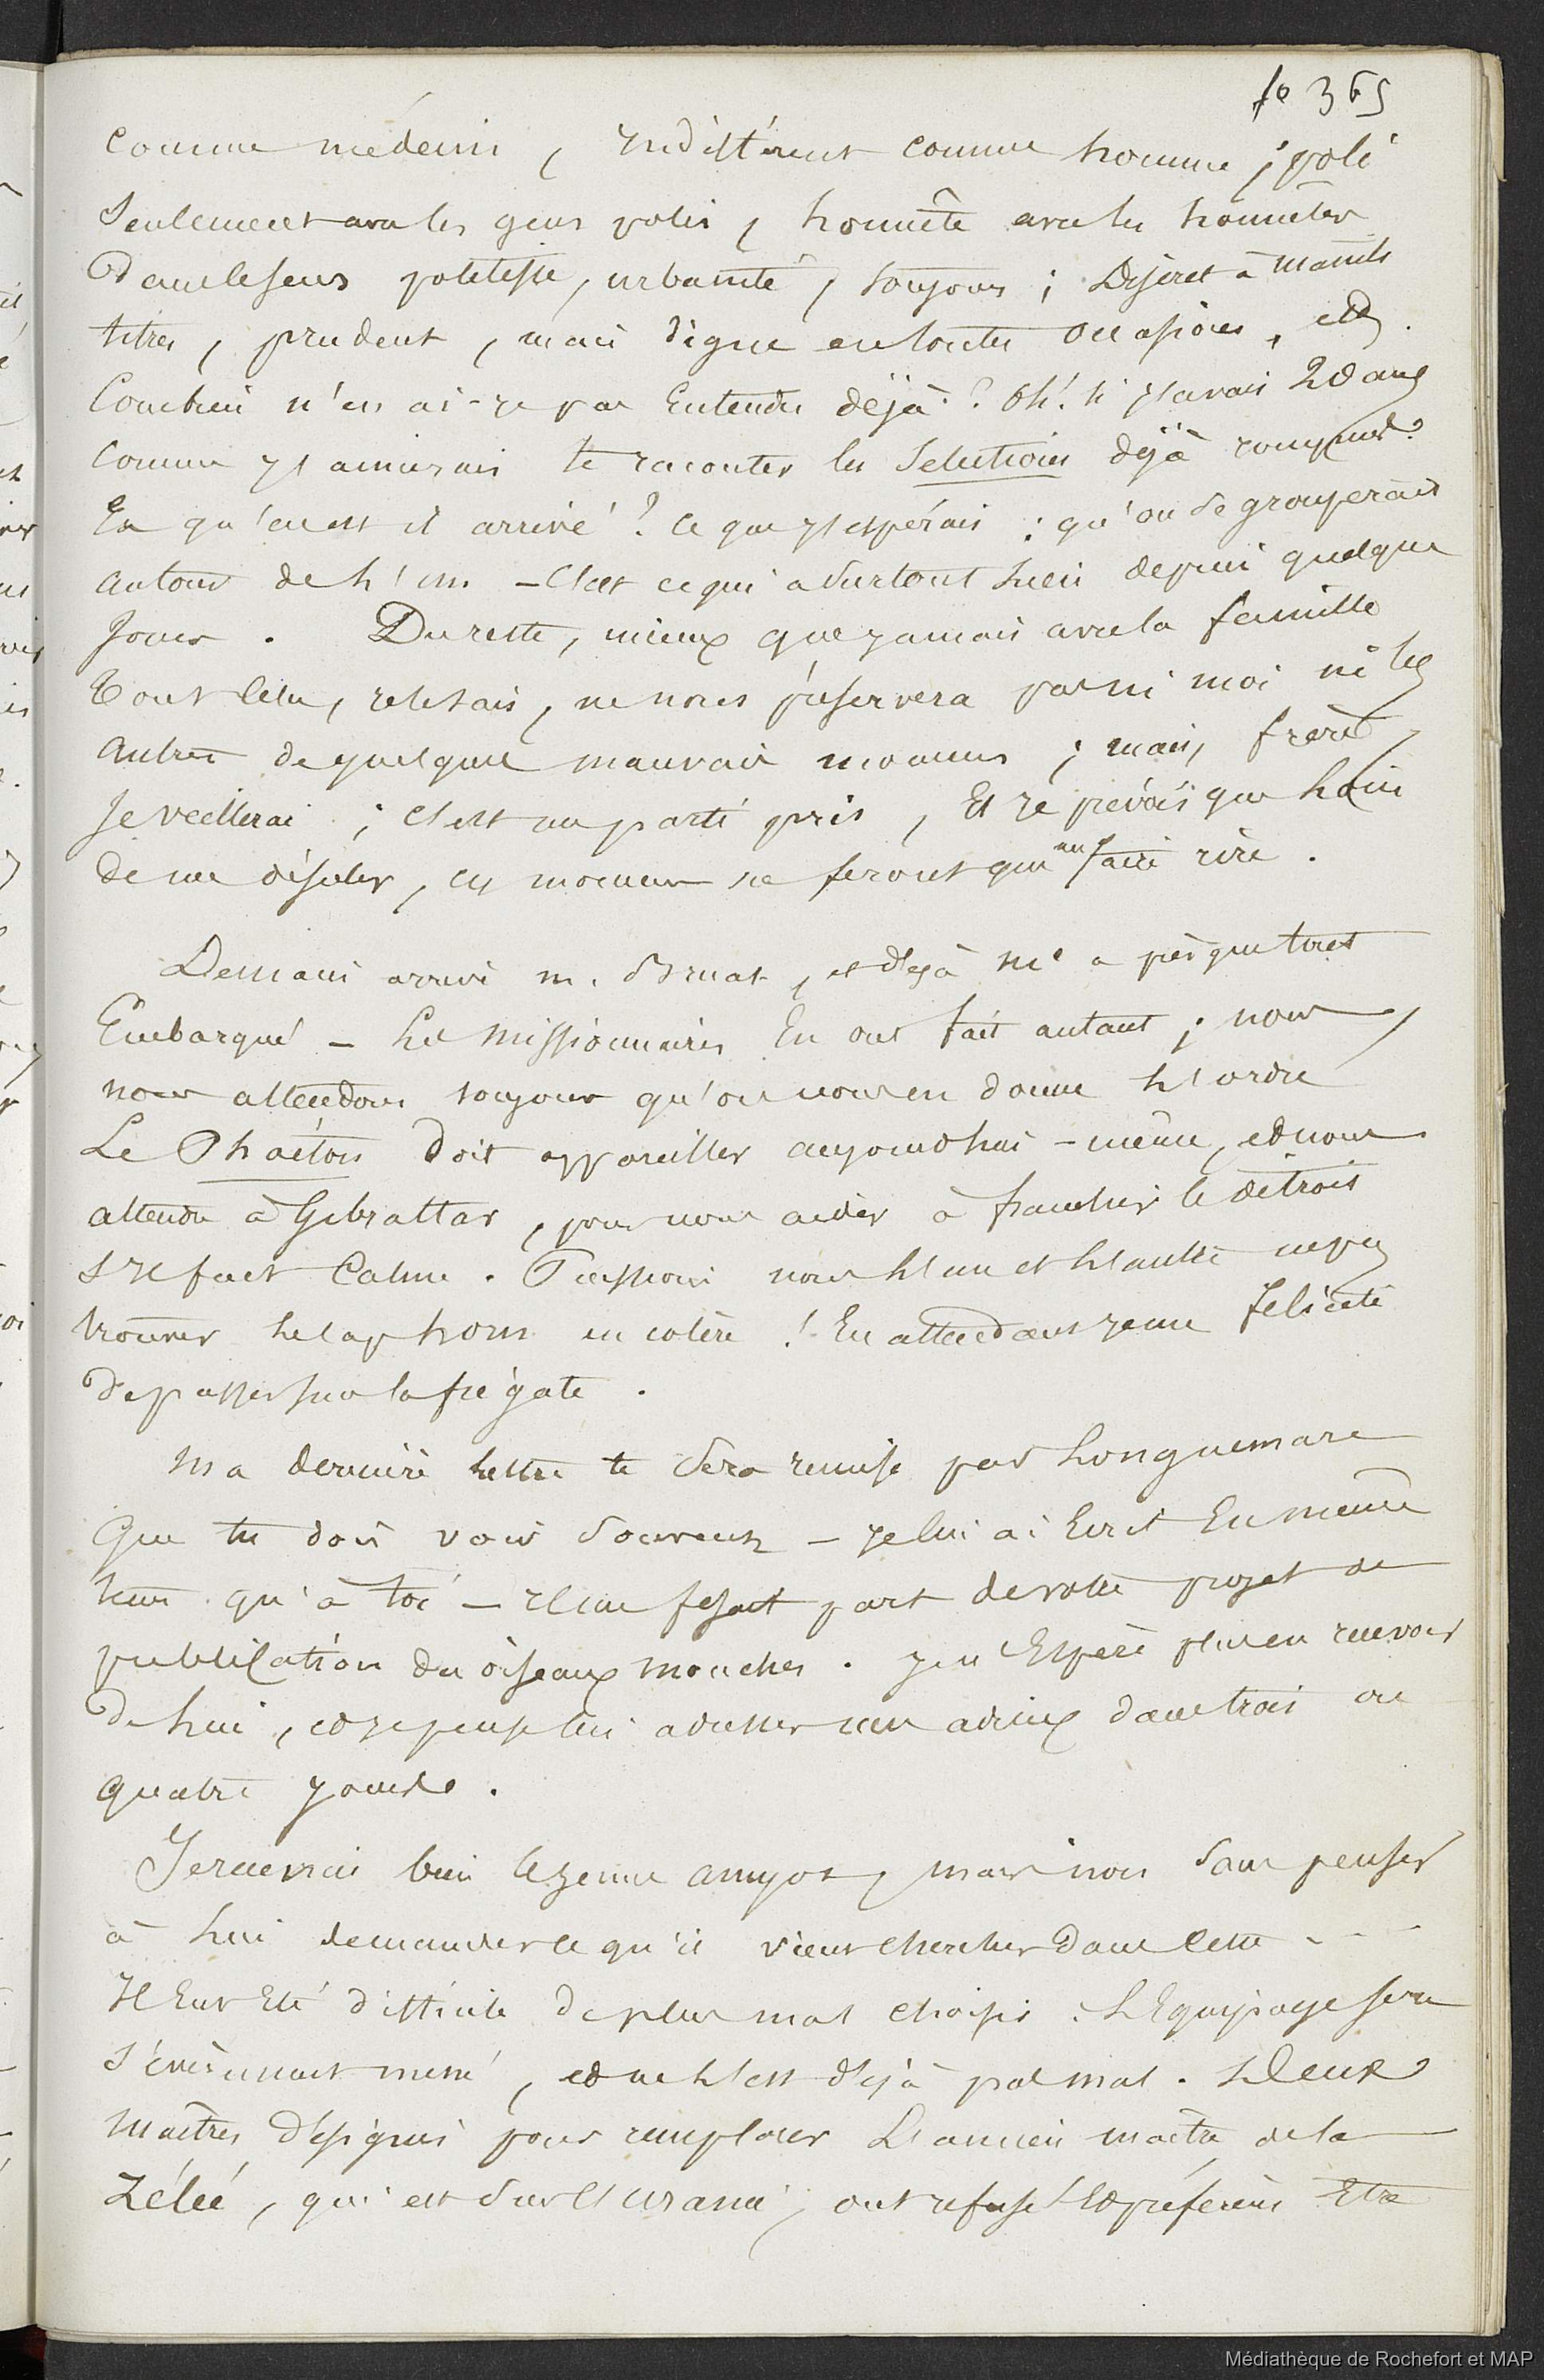 fo 365
Comme médecin, indifférent comme homme ; poli
Seulement avec les gens polis, honnête avec les honnêtes
Dans le sens politesse, urbanité, toujours ; Discret à maints
titres, prudent, mais digne en toutes occasions, etc.
Combien n'en ai-je pas Entendu déjà ? Oh ! si j'avais 20 ans
Comme j'aimerais te raconter les Sélections déjà
qu'en est il arrivé ? Ce que j'espérais : qu'on se grouperait
autour de l'un – C'est ce qui a surtout lieu depuis quelques
Jours . Du reste, mieux que jamais avec la famille
Tout cela, je le sais, ne nous préservera pas ni moi ni les
autres de quelques mauvaises moeurs ; mais, frère,
Je veillerai ; C'est un parti pris, Et je prévois que loin
de me désoler, ces moeurs ne feront que me faire rire .
Demain arrive m. Bruat, et déjà Me a presque tout
Embarqué – Les Missionnaires En ont fait autant ; nous,
nous attendons toujours qu'on nous en donne l'ordre
Le Phaéton doit appareiller aujourdhui – même, et nous
attendre à Gibraltar, pour nous aider à franchir le détroit
s'il fait Calme . Puissions nous l'un et l'autre ne pas
trouver le cap horn en colère ! En attendant je me félicite
de passer sur la frégate .
Ma dernière lettre te sera remise par Longuemare
Que tu dois voir souvent – je lui ai Ecrit En même
tems qu'à toi – il me fesait part de votre projet de
publication des oiseaux mouches . j'en Espère plus en recevoir
De lui, et je pense lui adresser mes adieux dans trois ou
quatre jours .
Je recevrai bien le jeune amyot, mais non sans penser
à lui demander ce qu'il vient chercher dans cette - - -
Il Eut Eté difficile de plus mal choisir . L'Equipage sera
sévèrement mené, et ne l'est déjà pas mal . Deux
Maîtres désignés pour remplacer L'ancien maître de la
Zélée, qui est sur l'uranie, ont refusé et préféré Etre
Médiathèque de Rochefort et MAP